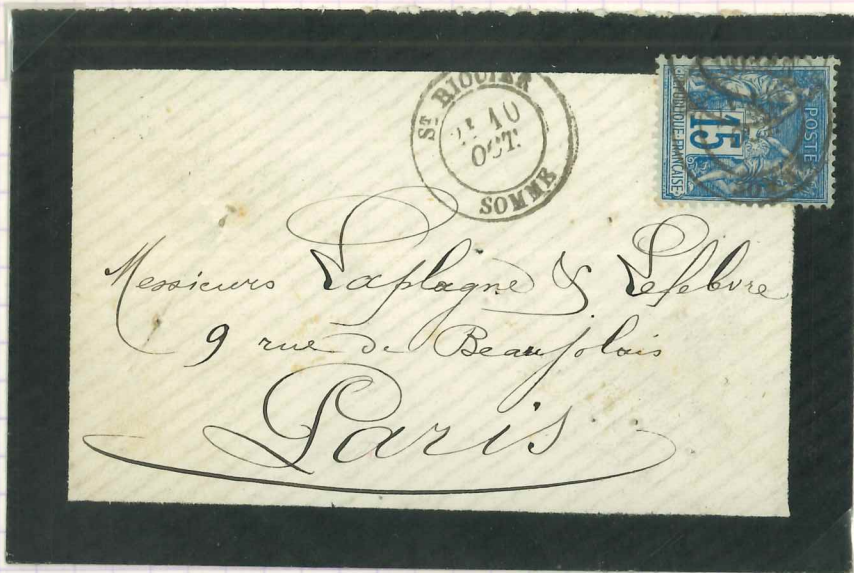 ST RIQUIER
10
OCT.
SOMME
POSTE
15
REPUBLIQUE FRANÇAISE
Messieurs Laplagne & Lefebvre
9 rue de Beaujolais
Paris